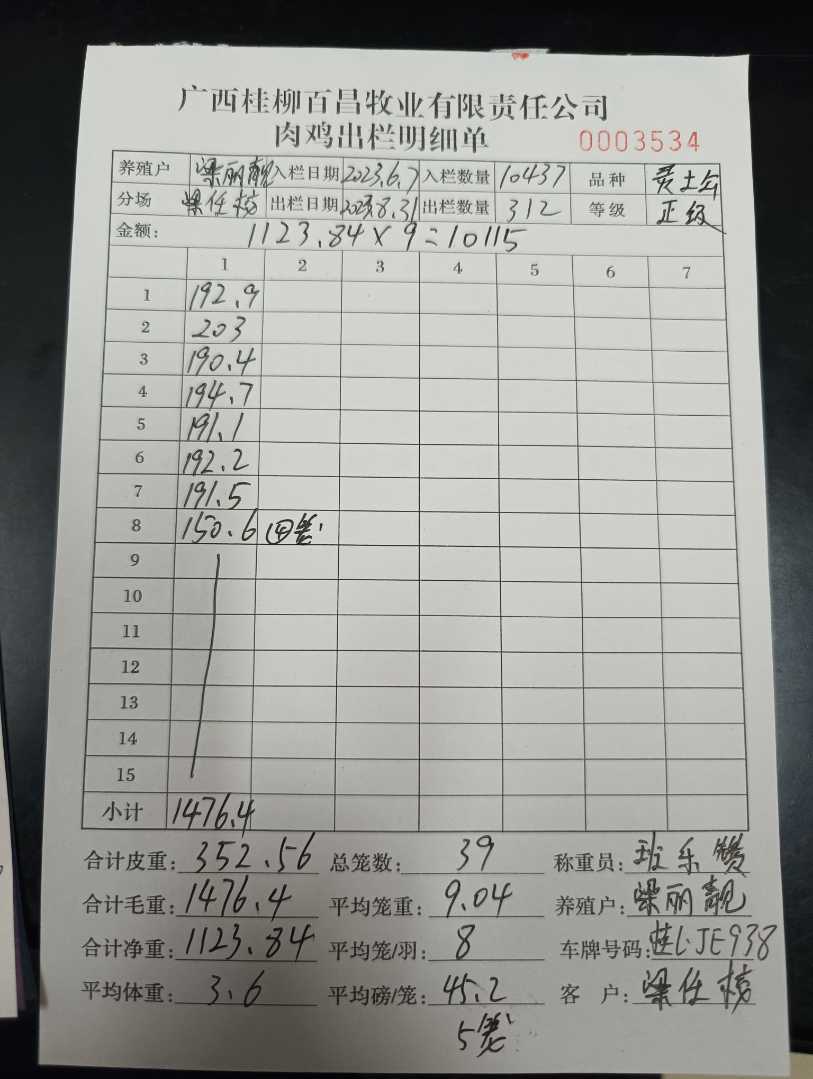 广西桂柳百昌牧业有限责任公司
肉鸡出栏明细单 0003534
养殖户 梁丽靓 入栏日期 2023.6.7 入栏数量 10437 品种 黄土公
分场 梁任榜 出栏日期 2023.8.31 出栏数量 312 等级 正级
金额: 1123.84×9=10115
1 2 3 4 5 6 7
1 192.9
2 203
3 190.4
4 194.7
5 191.1
6 192.2
7 191.5
8 150.6 四笼
9
10
11
12
13
14
15
小计 1476.4
合计皮重: 352.56 总笼数: 39 称重员:
合计毛重: 1476.4 平均笼重: 9.04 养殖户: 梁丽靓
合计净重: 1123.84 平均笼/羽: 8 车牌号码: 桂L·JE938
平均体重: 3.6 平均磅/笼: 45.2 客 户: 梁任榜
5笼